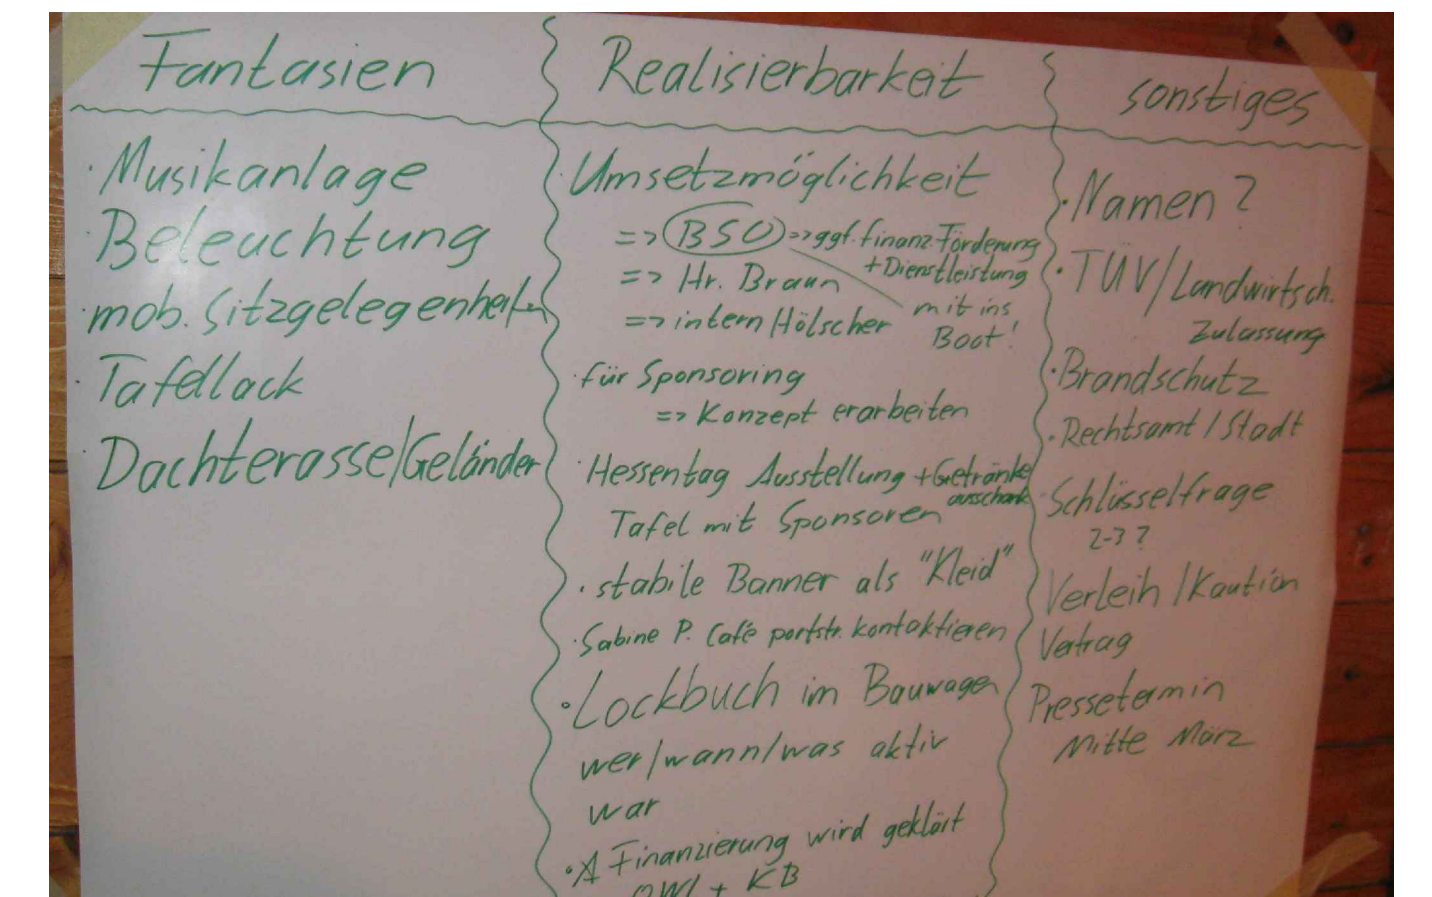 Fantasien
· Musikanlage
· Beleuchtung
· mob. Sitzgelegenheiten
· Tafellack
Dachterasse/Geländer
Realisierbarkeit
· Umsetzmöglichkeit
=> BSO => ggf. finanz. Förderung
+ Dienstleistung
=> Hr. Braun
mit ins
=> intern Hölscher
Boot!
· für Sponsoring
=> Konzept erarbeiten
· Hessentag Ausstellung + Getränke
ausschank
Tafel mit Sponsoren
· stabile Banner als "Kleid"
· Sabine P. Café portstr. kontaktieren
· Lockbuch im Bauwagen
wer/wann/was aktiv
war
· Finanzierung wird geklärt
OWI + KB
sonstiges
· Namen?
· TÜV/Landwirtsch.
Zulassung
· Brandschutz
· Rechtsamt / Stadt
· Schlüsselfrage
2-3?
Verleih / Kaution
Vertrag
Pressetermin
Mitte März